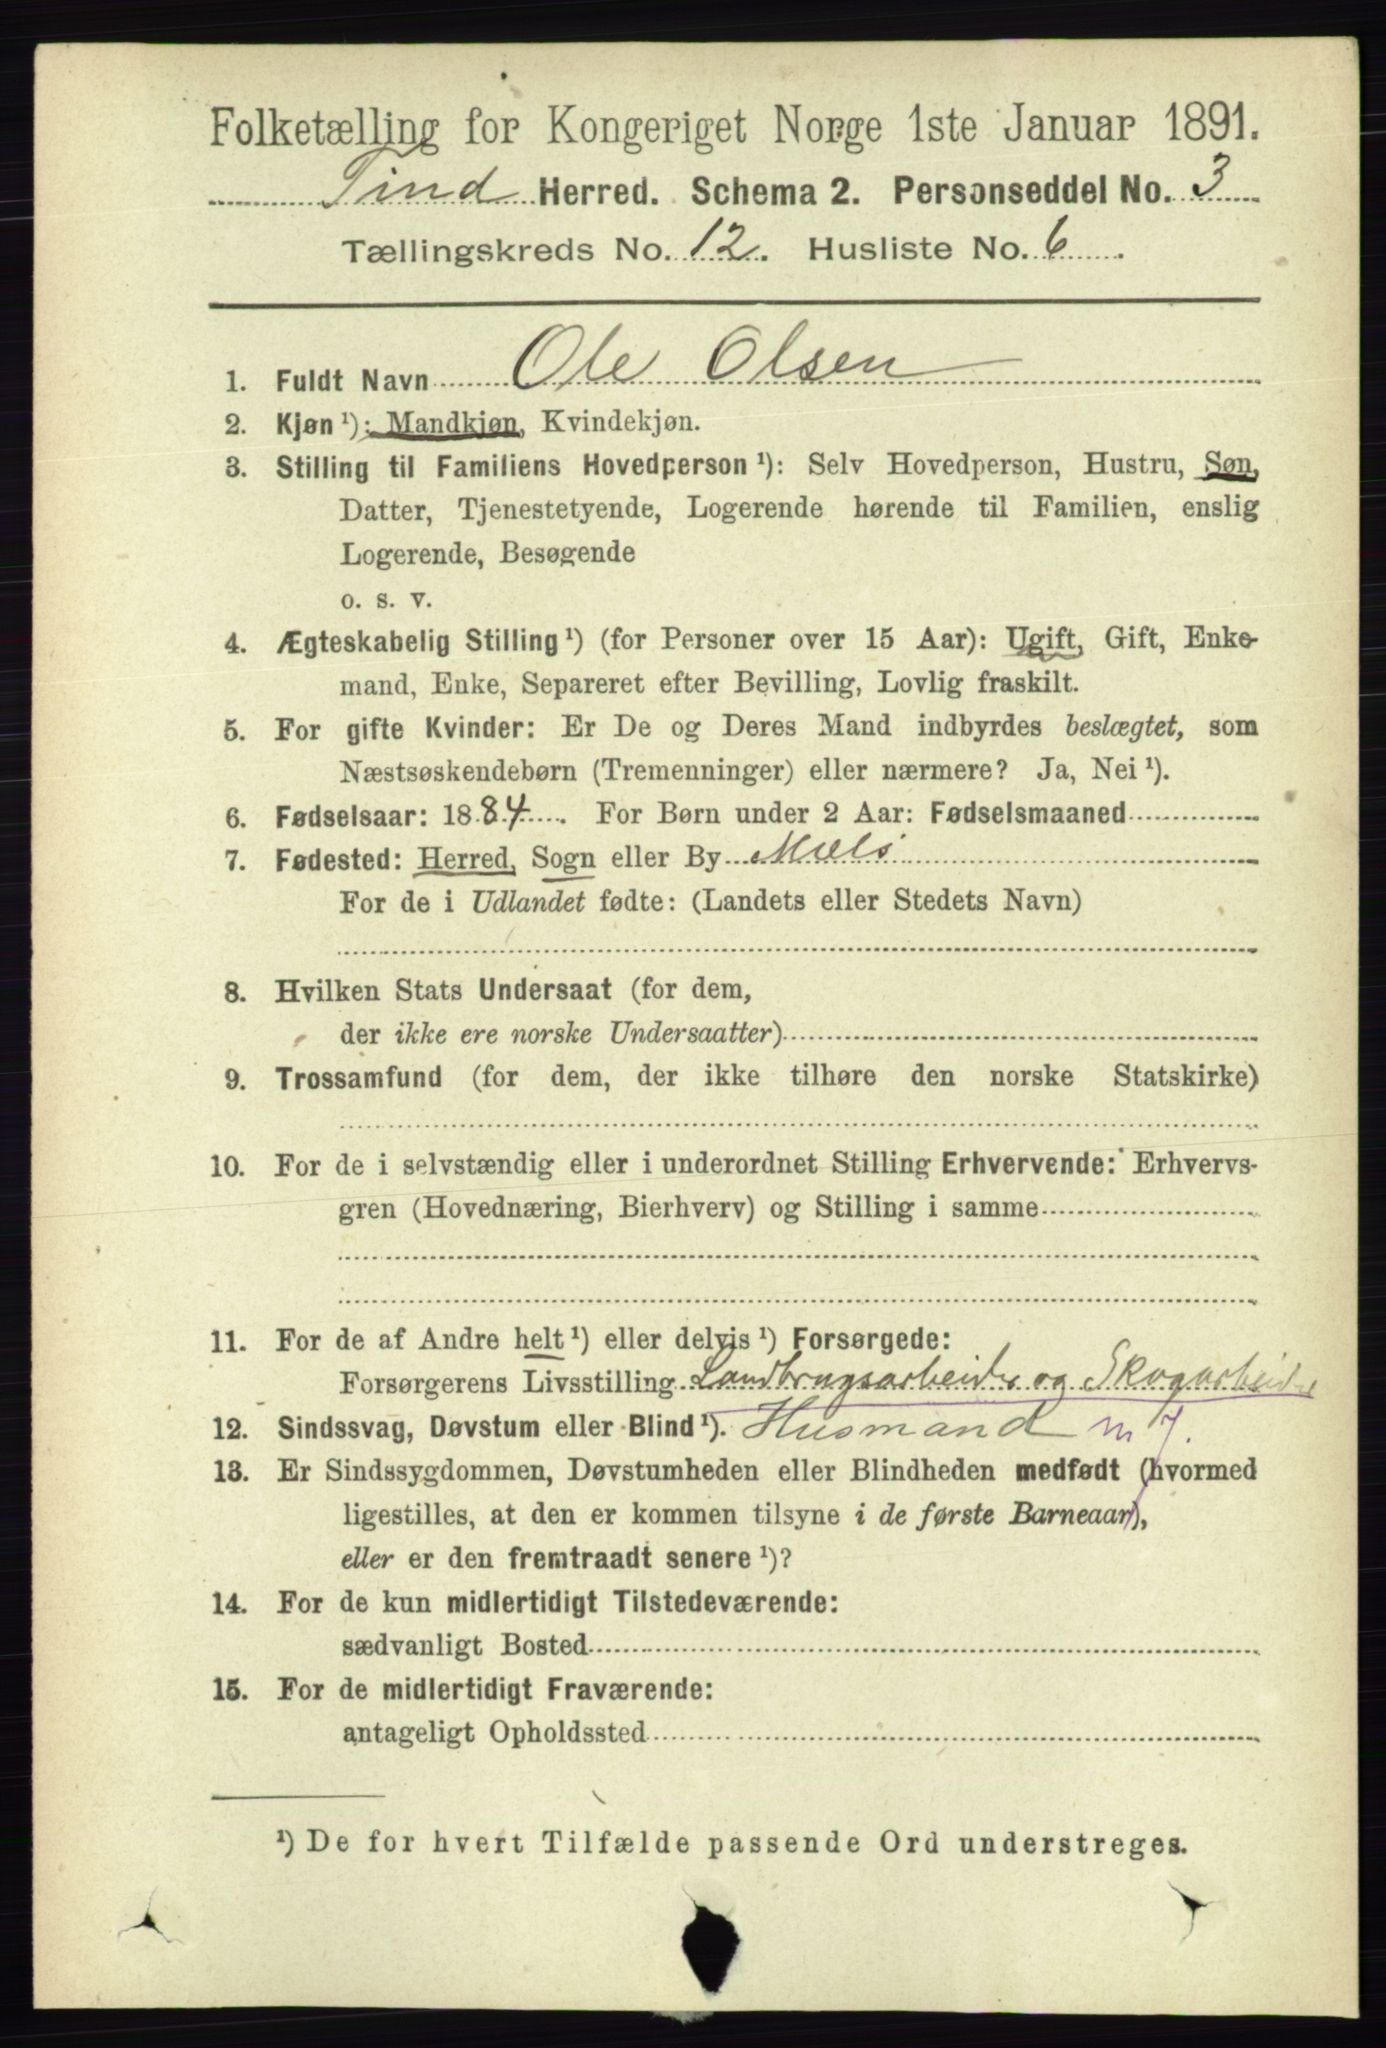 Folketælling for Kongeriget Norge 1ste Januar 1891.
Tind Herred. Schema 2. Personseddel No. 3
Tællingskreds No. 12. Husliste No. 6.
1. Fuldt Navn Ole Olsen
2. Kjøn ¹): Mandkjøn, Kvindekjøn.
3. Stilling til Familiens Hovedperson ¹): Selv Hovedperson, Hustru, Søn,
Datter, Tjenestetyende, Logerende hørende til Familien, enslig
Logerende, Besøgende
o. s. v.
4. Ægteskabelig Stilling ¹) (for Personer over 15 Aar): Ugift, Gift, Enke-
mand, Enke, Separeret efter Bevilling, Lovlig fraskilt.
5. For gifte Kvinder: Er De og Deres Mand indbyrdes beslægtet, som
Næstsøskendebørn (Tremenninger) eller nærmere? Ja, Nei ¹).
6. Fødselsaar: 1884. For Børn under 2 Aar: Fødselsmaaned
7. Fødested: Herred, Sogn eller By Mæls
For de i Udlandet fødte: (Landets eller Stedets Navn)
8. Hvilken Stats Undersaat (for dem,
der ikke ere norske Undersaatter)
9. Trossamfund (for dem, der ikke tilhøre den norske Statskirke)
10. For de i selvstændig eller i underordnet Stilling Erhvervende: Erhvervs-
gren (Hovednæring, Bierhverv) og Stilling i samme
11. For de af Andre helt ¹) eller delvis ¹) Forsørgede:
Forsørgerens Livsstilling Landbrugsarbeider og Skogarbeider
12. Sindssvag, Døvstum eller Blind ¹). Husmand m J.
13. Er Sindssygdommen, Døvstumheden eller Blindheden medfødt (hvormed
ligestilles, at den er kommen tilsyne i de første Barneaar),
eller er den fremtraadt senere ¹)?
14. For de kun midlertidigt Tilstedeværende:
sædvanligt Bosted
15. For de midlertidigt Fraværende:
antageligt Opholdssted
¹) De for hvert Tilfælde passende Ord understreges.